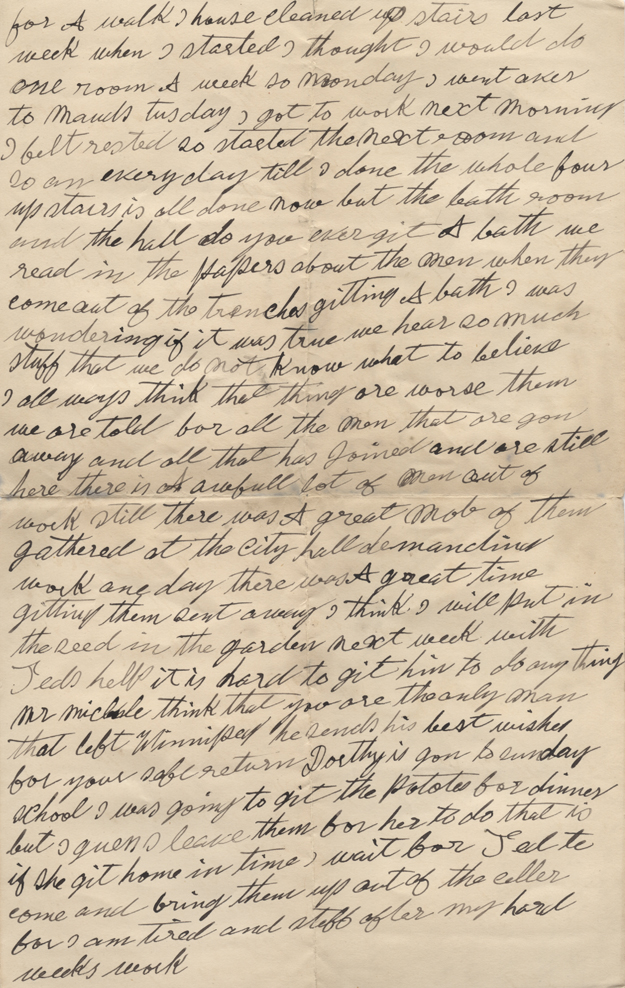 for A walk I house cleaned up stairs last
week when I started I thought I would do
one room A week so monday I went aker
to Mauds tusday I got to work next morning
I felt rested so started the next room and
so an every day till I done the whole four
up stairs is all done now but the bath room
and the hall do you ever git A bath we
read in the papers about the men when they
come out of the trenches gitting A bath I was
wondering if it was true we hear so much
stuff that we do not know what to believe
I all ways think that thing are worse them
we are told for all the men that are gon
away and all that has Joined and are still
here there is awfull lot of men out of
work still there was A great mob of them
gathered at the City hall demanding
work one day there was A great time
gitting them sent away I think I will put in
the seed in the garden next week with
Teds help it is hard to git him to do any thing
mr think that you are the only man
that left Winnipeg he sends his best wishes
for your safe return Dorthy is gon to sunday
school I was going to git the potatoes for dinner
but I guess I leave them for her to do that is
if she git home in time I wait for Ted to
come and bring them up out of the celler
for I am tired and stiff after my hard
weeks work